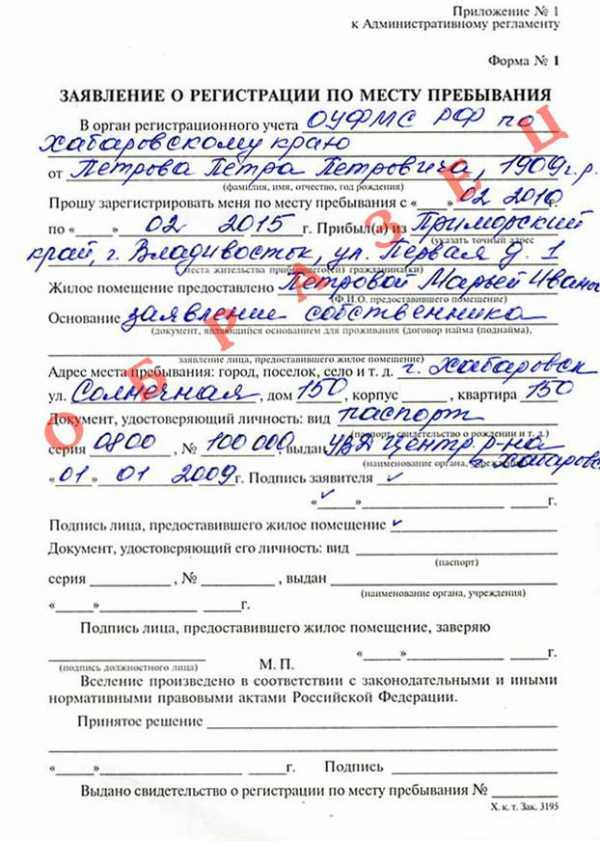 Приложение № 1
к Административному регламенту
Форма № 1
ЗАЯВЛЕНИЕ О РЕГИСТРАЦИИ ПО МЕСТУ ПРЕБЫВАНИЯ
В орган регистрационного учета ОУФМС РФ по
Хабаровскому краю
от Петрова Петра Петровича, 1909г.р.
(фамилия, имя, отчество, год рождения)
Прошу зарегистрировать меня по месту пребывания с «___» 02 2010г.
по «___» 02 2015 г. Прибыл(а) из Приморский
(указать точный адрес
край, г. Владивосток, ул. Первая д. 1
места жительства прибывшего(ей) гражданина(ки)
Жилое помещение предоставлено Петровой Марьей Ивано
(Ф.И.О. предоставившего помещение)
Основание заявление собственника
(документ, являющийся основанием для проживания (договор найма (поднайма),
заявление лица, предоставившего жилое помещение)
Адрес места пребывания: город, поселок, село и т. д. г. Хабаровск
ул. Солнечная, дом 150, корпус ______, квартира 150
Документ, удостоверяющий личность: вид паспорт
(паспорт, свидетельство о рождении и т. д.)
серия 0800, № 100 000, выдан УВД Центр. р-на
(наименование органа, учреждения)
г. Хабаровс
«01» 01 2009г. Подпись заявителя ✓
«✓» ______ г.
Подпись лица, предоставившего жилое помещение ✓
Документ, удостоверяющий его личность: вид ______
(паспорт)
серия ______, № ______, выдан ______
(наименование органа, учреждения)
«___» ______ г.
Подпись лица, предоставившего жилое помещение, заверяю
«___» ______ г.
(подпись должностного лица) М. П.
Вселение произведено в соответствии с законодательными и иными
нормативными правовыми актами Российской Федерации.
Принятое решение ______
«___» ______ г. Подпись ______
Выдано свидетельство о регистрации по месту пребывания № ______
Х. к. т. Зак. 3195
ОБРАЗЕЦ